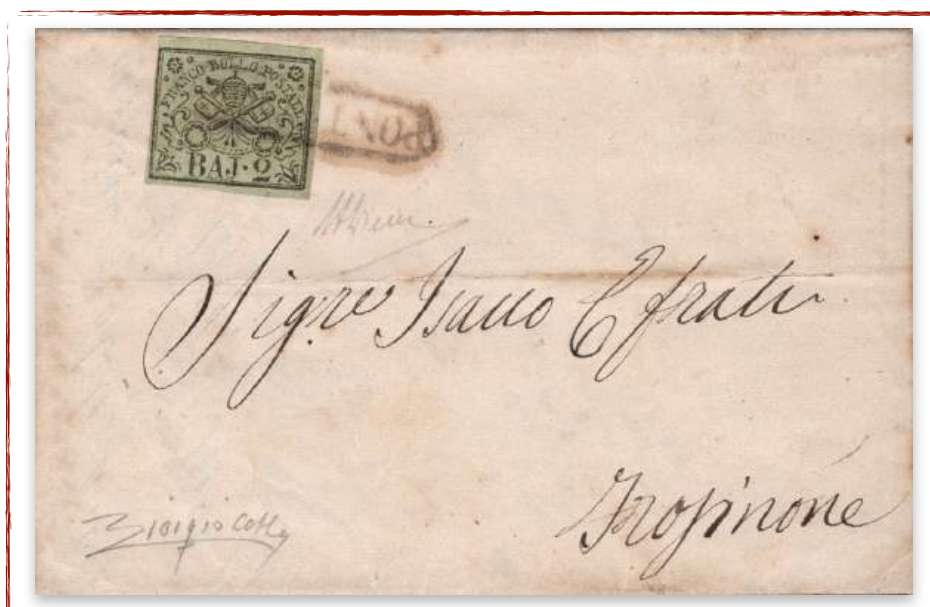 FRANCO BOLLO POSTALE
BAJ·2
Sig.re Isacco Efrati
Frosinone